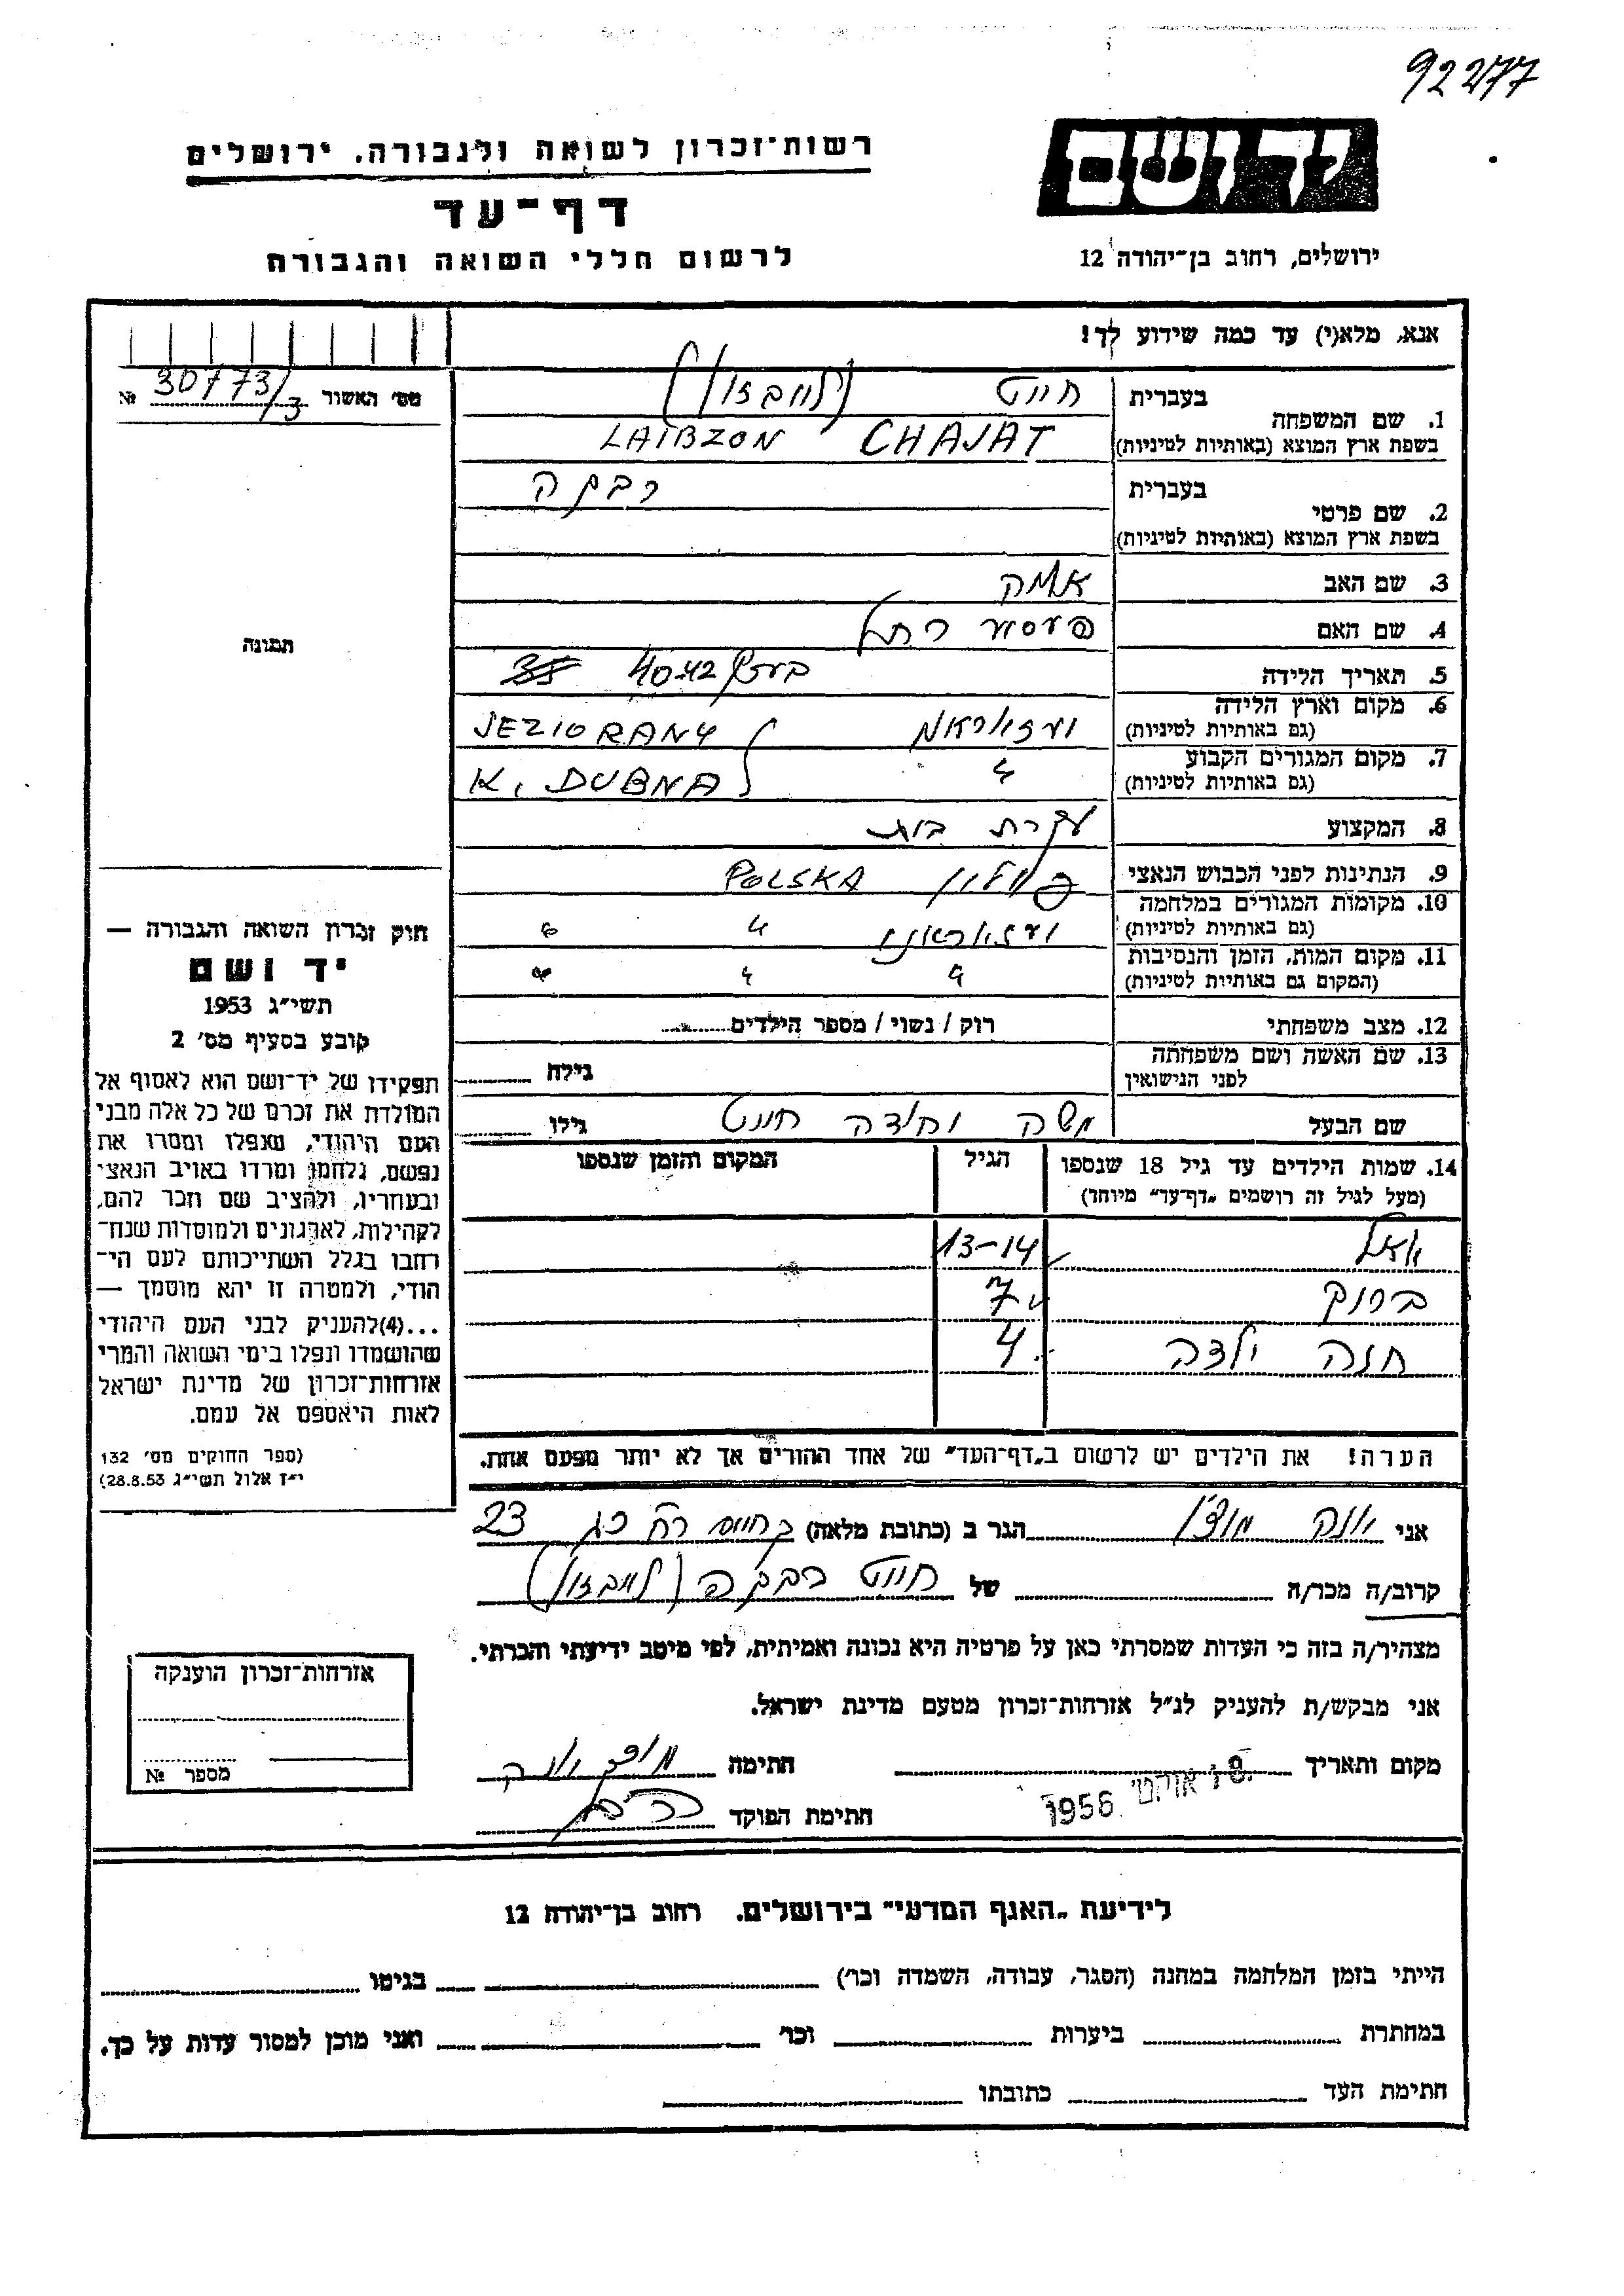 92277
רשות־זכרון לשואה ולגבורה, ירושלים
יד ושם
דף־עד
לרשום חללי השואה והגבורה
ירושלים, רחוב בן־יהודה 12
אנא, מלא(י) עד כמה שידוע לך!
מס׳ האשור 30773/3 №
בעברית חייט (לייבזון)
1. שם המשפחה
בשפת ארץ המוצא (באותיות לטיניות) CHAJAT LAIBZON
בעברית רבקה
2. שם פרטי
בשפת ארץ המוצא (באותיות לטיניות)
3. שם האב
4. שם האם רחל
תמונה
5. תאריך הלידה 40-42
6. מקום וארץ הלידה
(גם באותיות לטיניות) JEZIORANY
7. מקום המגורים הקבוע
(גם באותיות לטיניות) K. DUBNA
8. המקצוע עקרת בית
9. הנתינות לפני הכבוש הנאצי פולין POLSKA
10. מקומות המגורים במלחמה
(גם באותיות לטיניות)
11. מקום המות, הזמן והנסיבות
(המקום גם באותיות לטיניות)
12. מצב משפחתי רוק / נשוי / מספר הילדים
13. שם האשה ושם משפחתה
לפני הנישואין גילה
שם הבעל משה יהודה חייט גילו
14. שמות הילדים עד גיל 18 שנספו הגיל המקום והזמן שנספו
(מעל לגיל זה רושמים „דף־עד״ מיוחד)
13-14
ברוך 7
חנה ילדה 4
הערה! את הילדים יש לרשום ב„דף־העד״ של אחד ההורים אך לא יותר מפעם אחת.
חוק זכרון השואה והגבורה —
יד ושם
תשי״ג 1953
קובע בסעיף מס׳ 2
תפקידו של יד־ושם הוא לאסוף אל
המולדת את זכרם של כל אלה מבני
העם היהודי, שנפלו ומסרו את
נפשם, נלחמו ומרדו באויב הנאצי
ובעוזריו, ולהציב שם וזכר להם,
לקהילות, לארגונים ולמוסדות שנח־
רבו בגלל השתייכותם לעם הי־
הודי, ולמטרה זו יהא מוסמך —
...(4)להעניק לבני העם היהודי
שהושמדו ונפלו בימי השואה והמרי
אזרחות־זכרון של מדינת ישראל
לאות היאספם אל עמם.
(ספר החוקים מס׳ 132
י״ז אלול תשי״ג 28.8.53)
אני יונה הגר ב (כתובת מלאה) 23
קרוב/ה מכר/ה של חייט רבקה (לייבזון)
מצהיר/ה בזה כי העדות שמסרתי כאן על פרטיה היא נכונה ואמיתית, לפי מיטב ידיעתי והכרתי.
אני מבקש/ת להעניק לנ״ל אזרחות־זכרון מטעם מדינת ישראל.
מקום ותאריך אוקט׳ 1956 חתימה
חתימת הפוקד
אזרחות־זכרון הוענקה
מספר №
לידיעת „האגף המדעי״ בירושלים, רחוב בן־יהודה 12
הייתי בזמן המלחמה במחנה (הסגר, עבודה, השמדה וכו׳) בגיטו
במחתרת ביערות וכו׳ ואני מוכן למסור עדות על כך.
חתימת העד כתובתו